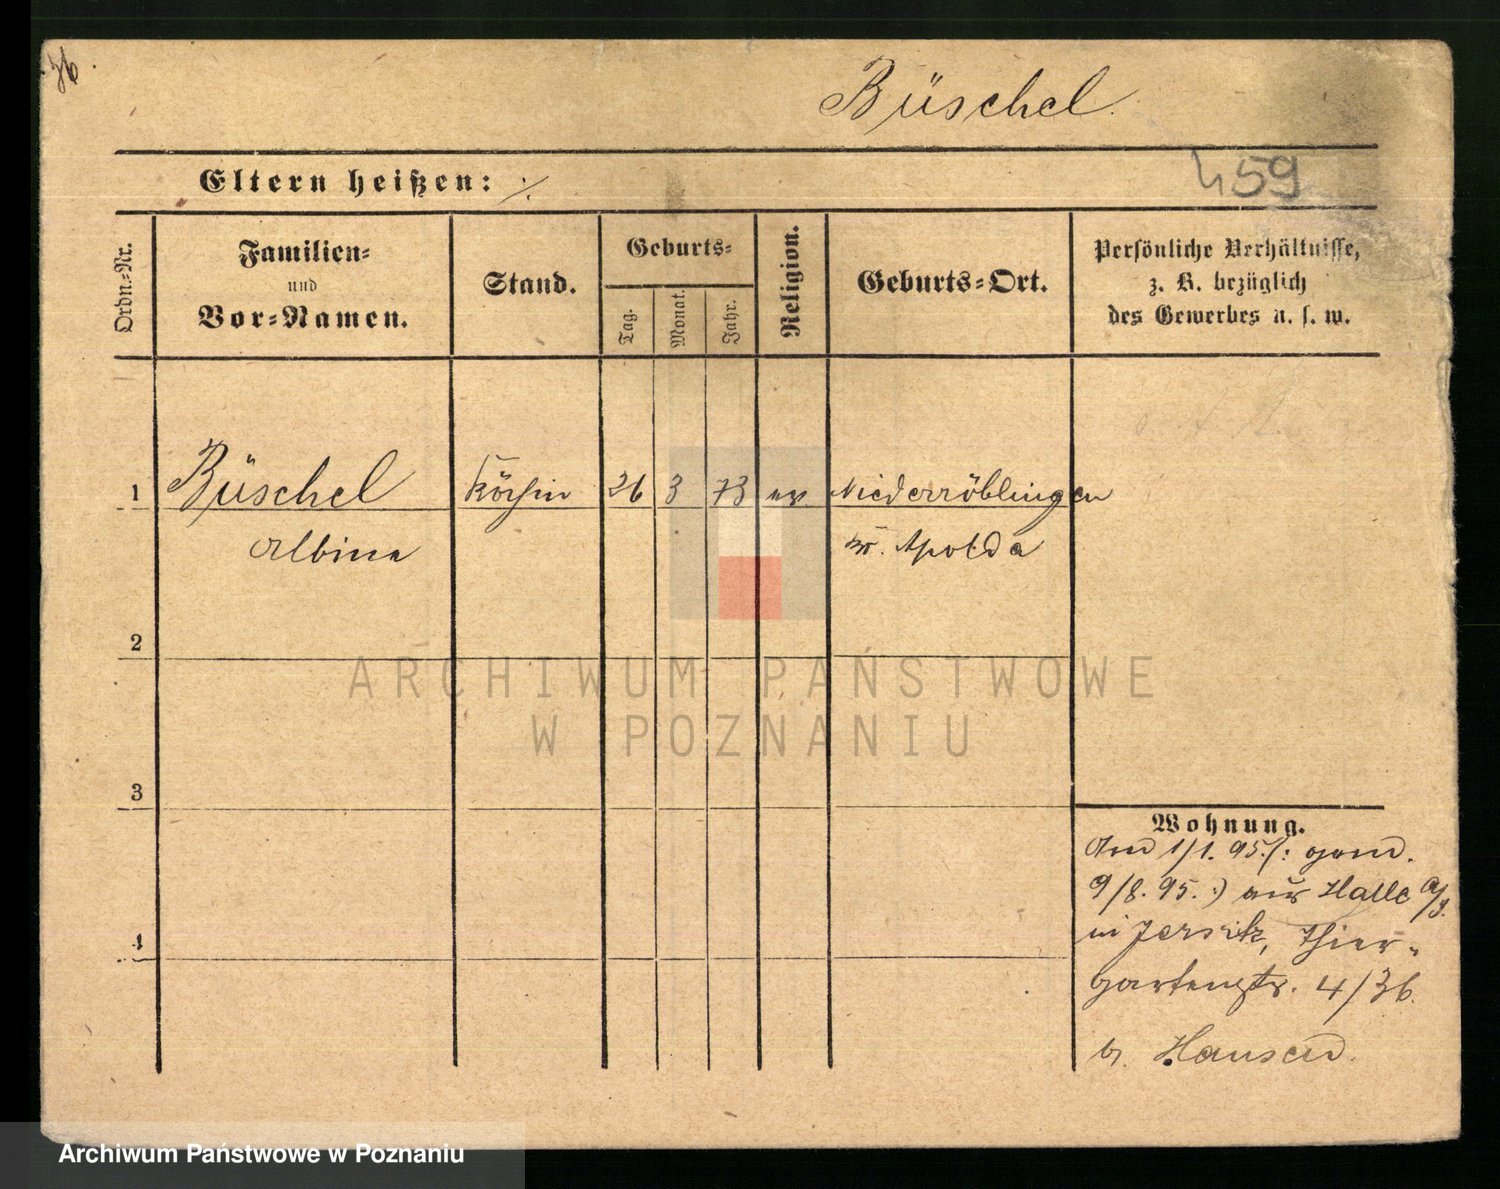 36.
Büschel.
459
Eltern heißen: ./.
Ordn.-Nr.
Familien-
und
Vor-Namen.
Stand.
Geburts-
Tag.
Monat.
Jahr.
Religion.
Geburts-Ort.
Persönliche Verhältnisse,
z. B. bezüglich
des Gewerbes u. s. w.
1 Büschel Köchin 26 3 73 ev. Niederröblingen
Albina Kr. Apolda
2
ARCHIWUM PAŃSTWOWE
W POZNANIU
3
Wohnung.
1/1. 95. (: gem.
9/8. 95. :) aus Halle a/S.
4
in Jersitz, Thier-
gartenstr. 4/36.
b.
Archiwum Państwowe w Poznaniu